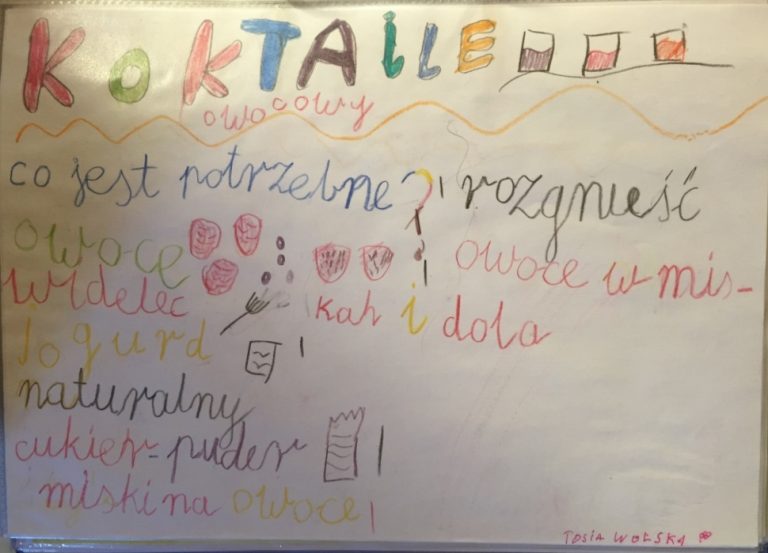 KOKTAiLE
owocowy
co jest potrzebne?
owoce
widelec
Jogurd
naturalny
cukier-puder
miski na owoce
rozgnieść
owoce w mis-
kah i dola
TOSIA WOLSKA